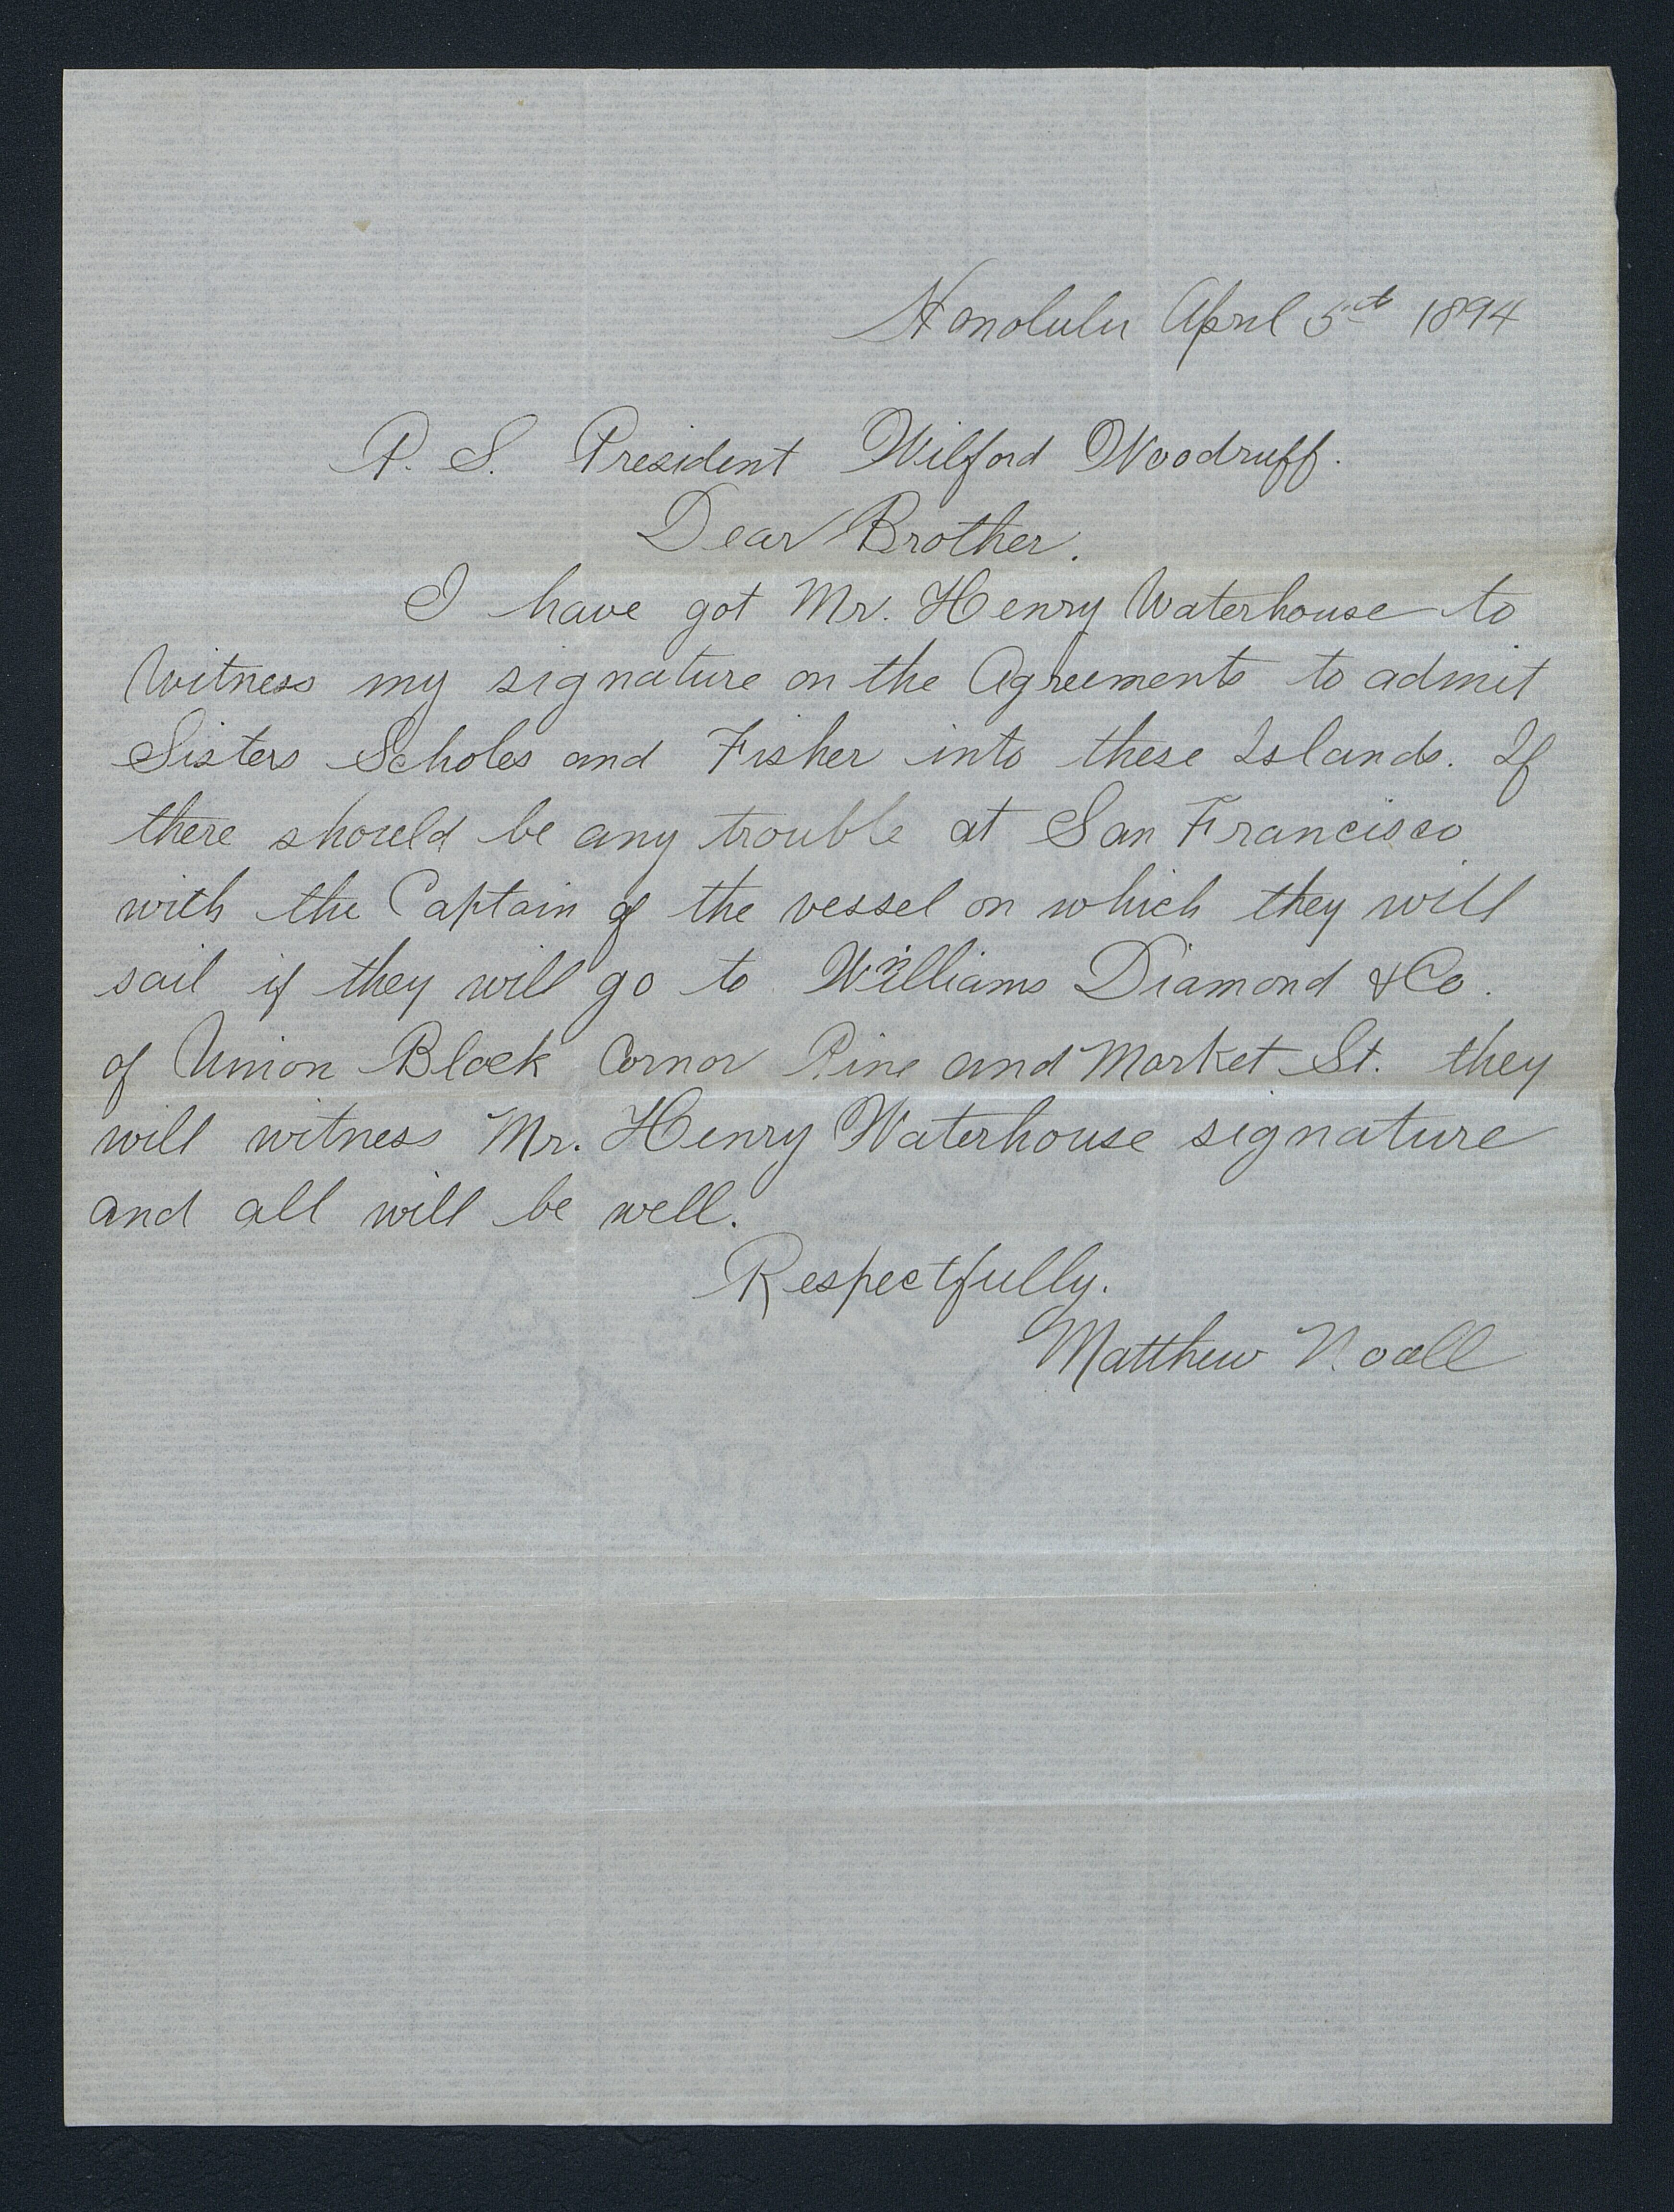 Honolulu April 5th 1894
P. S. President Wilford Woodruff.
Dear Brother.
I have got Mr. Henry Waterhouse to
witness my signature on the Agreements to admit
Sisters Scholes and Fisher into these Islands. If
there should be any trouble at San Francisco
with the Captain of the vessel on which they will
sail if they will go to Williams Diamond & Co.
of Union Block Cornor Pine and Market St. they
will witness Mr. Henry Waterhouse signature
and all will be well.
Respectfully.
Matthew Noall